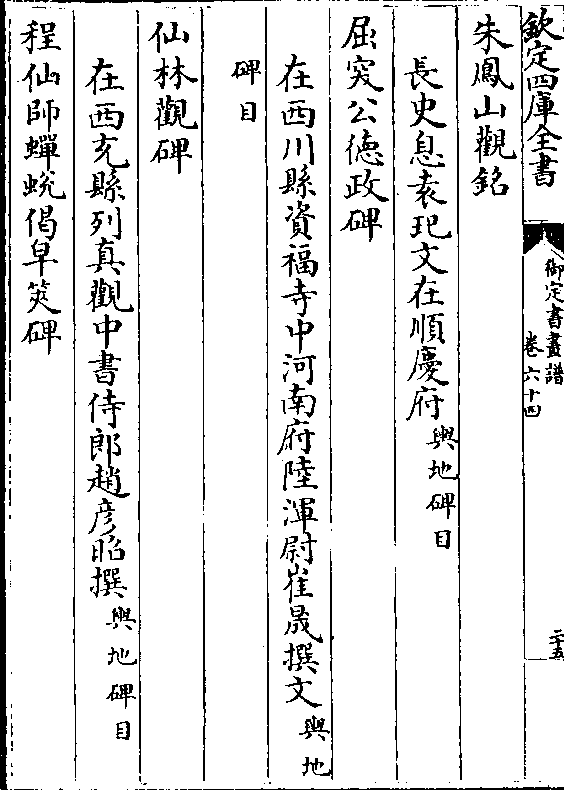 欽定四庫全書
御定書畫譜
卷六十四
二十五
朱鳳山觀銘
長史息袁玘文在順慶府輿地碑目
屈突公德政碑
在西川縣資福寺中河南府陸渾尉崔晟撰文輿地
碑目
仙林觀碑
在西充縣列真觀中書侍郎趙彥昭撰輿地碑目
程仙師蟬蛻偈皁筴碑